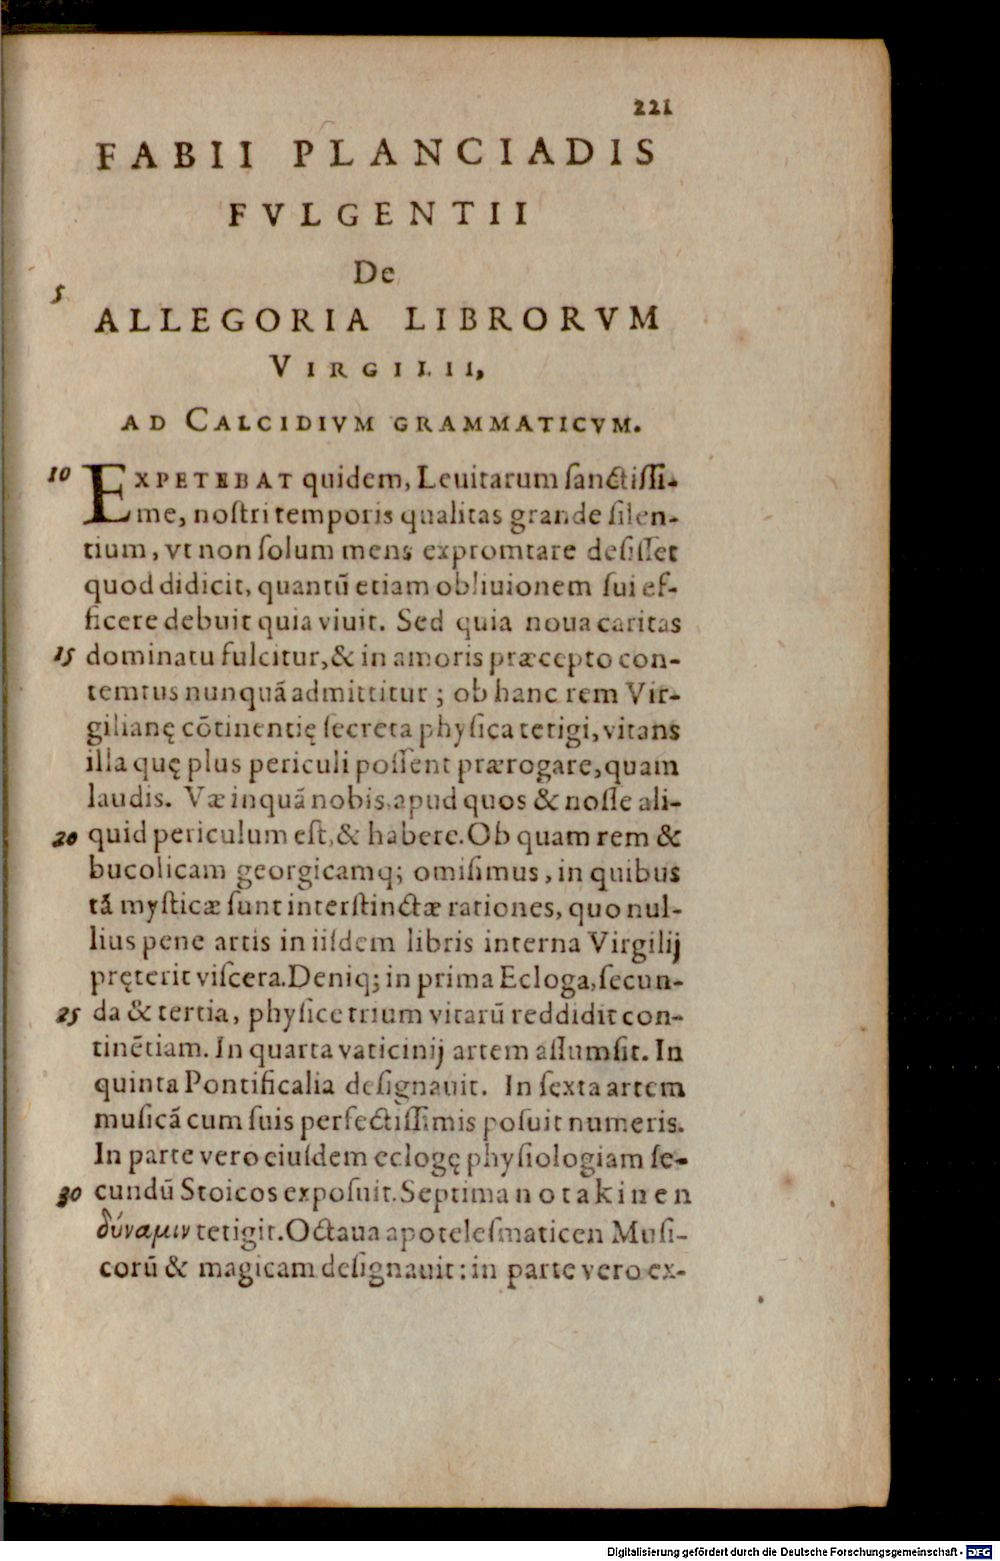 221
FABII PLANCIADIS
FVLGENTII
De
5
ALLEGORIA LIBRORVM
VIRGILII,
AD CALCIDIVM GRAMMATICVM.
10 EXPETEBAT quidem, Leuitarum sanctissi-
me, nostri temporis qualitas grande silen-
tium, vt non solum mens expromtare desisset
quod didicit, quantũ etiam obliuionem sui ef-
ficere debuit quia viuit. Sed quia noua caritas
15 dominatu fulcitur, & in amoris præcepto con-
temtus nunquã admittitur; ob hanc rem Vir-
gilianę cõtinentię secreta physica tetigi, vitans
illa quę plus periculi possent prærogare, quam
laudis. Væ inquã nobis, apud quos & nosse ali-
20 quid periculum est, & habere. Ob quam rem &
bucolicam georgicamq; omisimus, in quibus
tã mysticæ sunt interstinctæ rationes, quo nul-
lius pene artis in iisdem libris interna Virgilij
pręterit viscera. Deniq; in prima Ecloga, secun-
25 da & tertia, physice trium vitarũ reddidit con-
tinẽtiam. In quarta vaticinij artem assumsit. In
quinta Pontificalia designauit. In sexta artem
musicã cum suis perfectissimis posuit numeris.
In parte vero eiusdem eclogę physiologiam se-
30 cundũ Stoicos exposuit. Septima notakinen
δύναμιν tetigit. Octaua apotelesmaticen Musi-
corũ & magicam designauit: in parte vero ex-
Digitalisierung gefördert durch die Deutsche Forschungsgemeinschaft - DFG